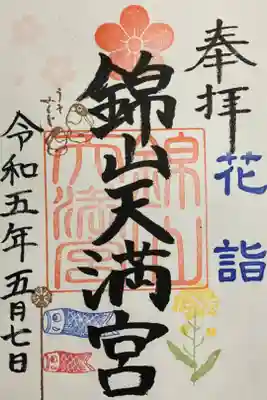 奉拝
花詣
錦山天満宮
令和五年五月七日